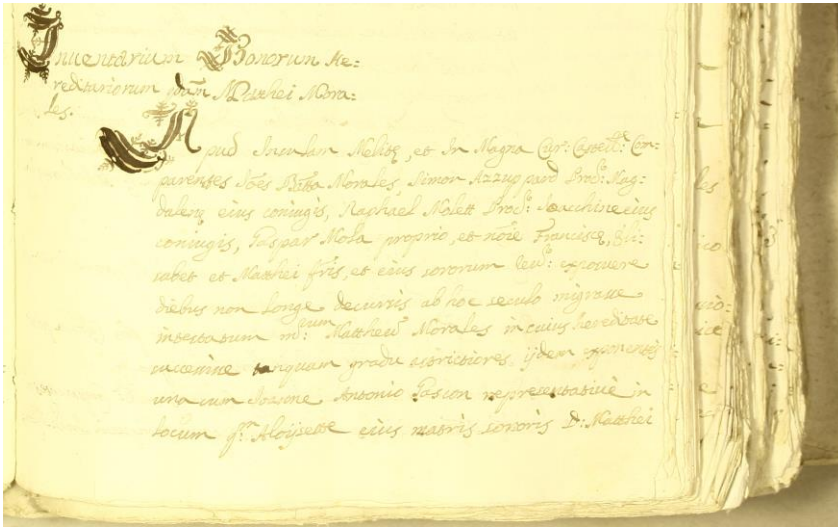 Inventarium Bonorum He:
reditariorum qdam Matthei Mora:
les.
Apud Insulam Melitę, et In Magna Cur: Castell: Com-
parentes Joẽs Batta Morales, Simon Azzupard Prod: Mag-
dalenę eius coniugis, Raphael Molett Prod: Joacchine eius
coniugis, Gaspar Mola proprio, et nõie Franciscę, Eli-
sabet et Matthei fris, et eius sororum exposuere
diebus non longe decursis ab hoc seculo migrasse
intestatum Mattheum Morales in cuius hereditate
tanquam gradu astrictiores ijdem exponentes
una cum Joanne Antonio Pascon representative in
locum Aloysette eius matris sororis D: Matthei
les
ico